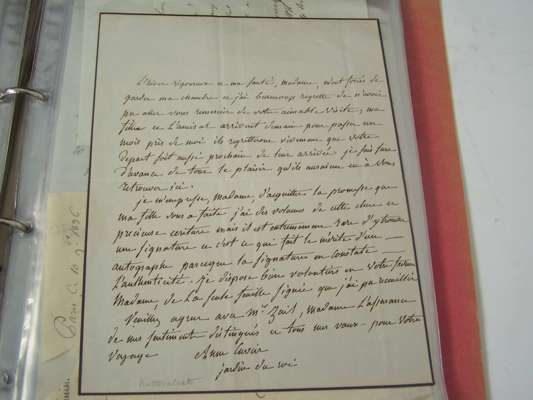 L'hiver rigoureux et ma santé, madame, m'ont forcée de
garder ma chambre et j'ai beaucoup regretté de n'avoir
pu aller vous remercier de votre aimable visite; ma
fille et L'amiral arrivent demain pour passer un
mois près de moi ils regretteront vivement que votre
départ soit aussi prochain de leur arrivée je suis sûre
d'avance de tout le plaisir qu'ils auraient eu à vous
retrouver ici.
je m'empresse, Madame, d'acquitter la promesse que
ma fille vous a faite j'ai des volumes de cette chère et
précieuse écriture mais il est extrêmement rare d'y trouver
une signature et c'est ce qui fait le mérite d'un
autographe parceque la signature en constate
L'authenticité. je dépose bien volontiers en votre
Madame, de La seule feuille signée que j'ai pu recueillir
Veuillez agréer avec Mr , Madame L'assurance
de mes sentiments distingués et tous mes vœux pour Votre
Voyage
jardin du roi
Paris le 10 1836